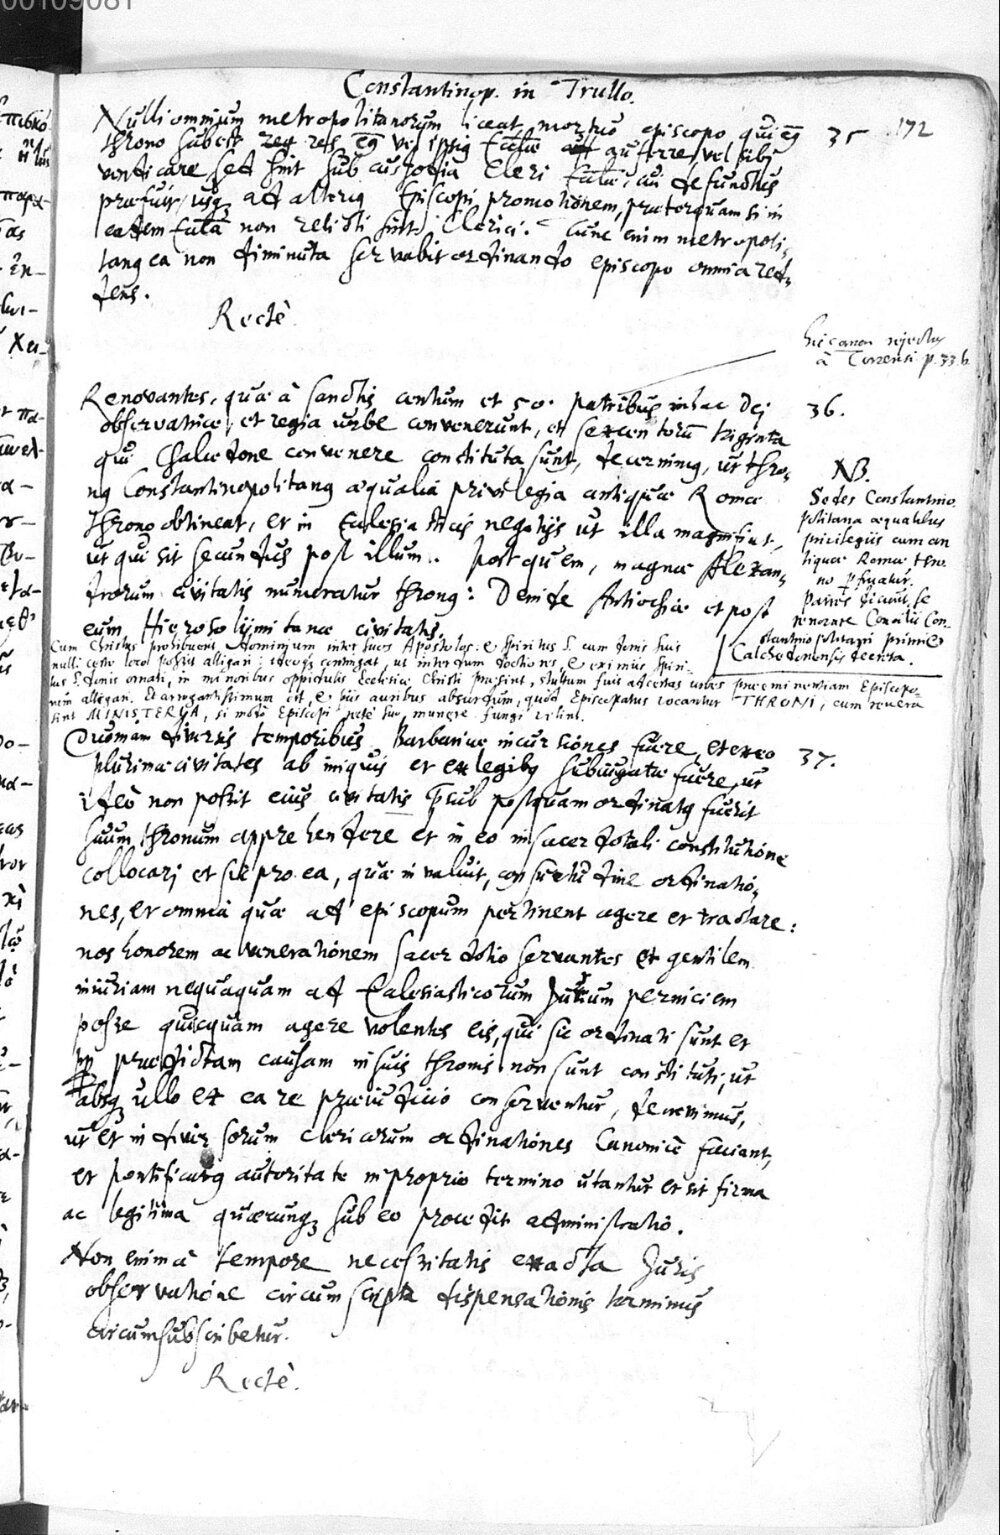 00109081
Constantinop. in Trullo.
172
Nulli omnium metropolitanorum liceat mortuo episcopo qui eius
35
throno subest res eius vel ipsius Ecclae auferre, vel sibi
vendicare, sed sint sub custodia Cleri Ecclae, cui defunctus
praefuit, usq ad alterius Episcopi promotionem, praeterquam si in
eadem Eccla non relicti sint Clerici. Tunc enim metropoli-
tanus ea non diminuta servabit ordinando episcopo omnia red-
dens.
Rectè.
hic canon rejectus
à Turrensi p. 33. b
Renovantes, quae à sanctis centum et 50. patribus in hac Dei
36.
observatrice, et regia urbe convenerunt, et sexcentorum triginta
qui Chalcedone convenere constituta sunt, decernimus, ut thro-
nus Constantinopolitanus aequalia privilegia antiquae Romae
throno obtineat, et in Ecclesiasticis negotijs ut illa magnifiat,
ut qui sit secundus post illum. Post quem, magnae Alexan-
drorum civitatis numeratur thronus: Deinde Antiochiae et post
eum Hierosolymitanae civitatis.
NB.
Sedes Constantino
politana aequalibus
privilegiis cum an
tiquae Romae thro
no fruatur.
Patres dicunt, se
renovare Concilii Con-
stantinopolitani primi et
Calchedonensis decreta.
Cum Christus prohibuerit dominium inter suos Apostolos, et Spiritus S. cum donis suis
nulli certo loco possit alligari: ideoq contingat, ut interdum doctiores, et eximiis Spiri-
tus S. donis ornati, in minoribus oppidulis Ecclesiae Christi praesint, stultum fuit ad certas urbes praeeminentiam Episcopo-
rum alligari. Et arrogantissimum est, et piis auribus absurdum, quod Episcopatus vocantur THRONI, cum revera
sint MINISTERIA, si modo Episcopi recte suo munere fungi velint.
Quoniam diversis temporibus Barbaricae incursiones fuere, et ex eo
37.
plurimae civitates ab iniquis et exlegibus subiugatae fuere, ut
ideo non possit eius civitatis praesul postquam ordinatus fuerit
suum thronum apprehendere et in eo in sacerdotali constitutione
collocari et sic pro ea, quae invaluit, consuetudine ordinatio-
nes, et omnia quae ad episcopum pertinent agere et tractare:
nos honorem ac venerationem sacerdotio servantes et gentilem
iniuriam nequaquam ad Ecclesiasticorum Jurium perniciem
posse quicquam agere volentes eis, qui sic ordinati sunt et
propter praedictam causam in suis thronis non sunt constituti, ut
absq ullo ex ea re praeiudicio conserventur, decrevimus,
ut et in diversorum clericorum ordinationes Canonicè faciant,
et pontificatus autoritate in proprio termino utantur et sit firma
ac legitima quaecunq sub eo procedit administratio.
Non enim à tempore necessitatis exacta Juris
observatione circumscripta dispensationis terminus
circumsubscribetur.
Rectè.